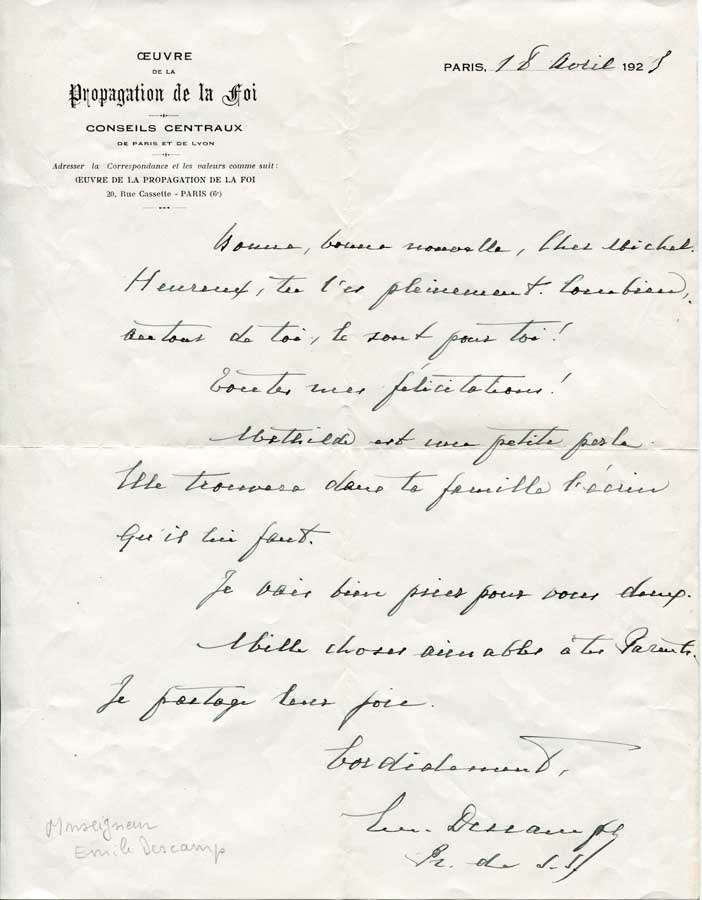 ŒUVRE
DE LA
Propagation de la Foi
CONSEILS CENTRAUX
DE PARIS ET DE LYON
Adresser la Correspondance et les valeurs comme suit:
ŒUVRE DE LA PROPAGATION DE LA FOI
20, Rue Cassette - PARIS (6e)
PARIS, 18 Avril 192
Bonne, bonne nouvelle, Cher Michel.
Heureux, tu l'es pleinement. Combien,
autour de toi, le sont pour toi!
Toutes mes félicitations!
Mathilde est une petite perle.
Elle trouvera dans ta famille l'écrin
qu'il lui faut.
Je vais bien prier pour vous deux.
Mille choses aimables à tes Parents.
Je partage leur joie.
Cordialement,
Em. Descamps
Pr. de S.S.
Monseigneur
Emile Descamps